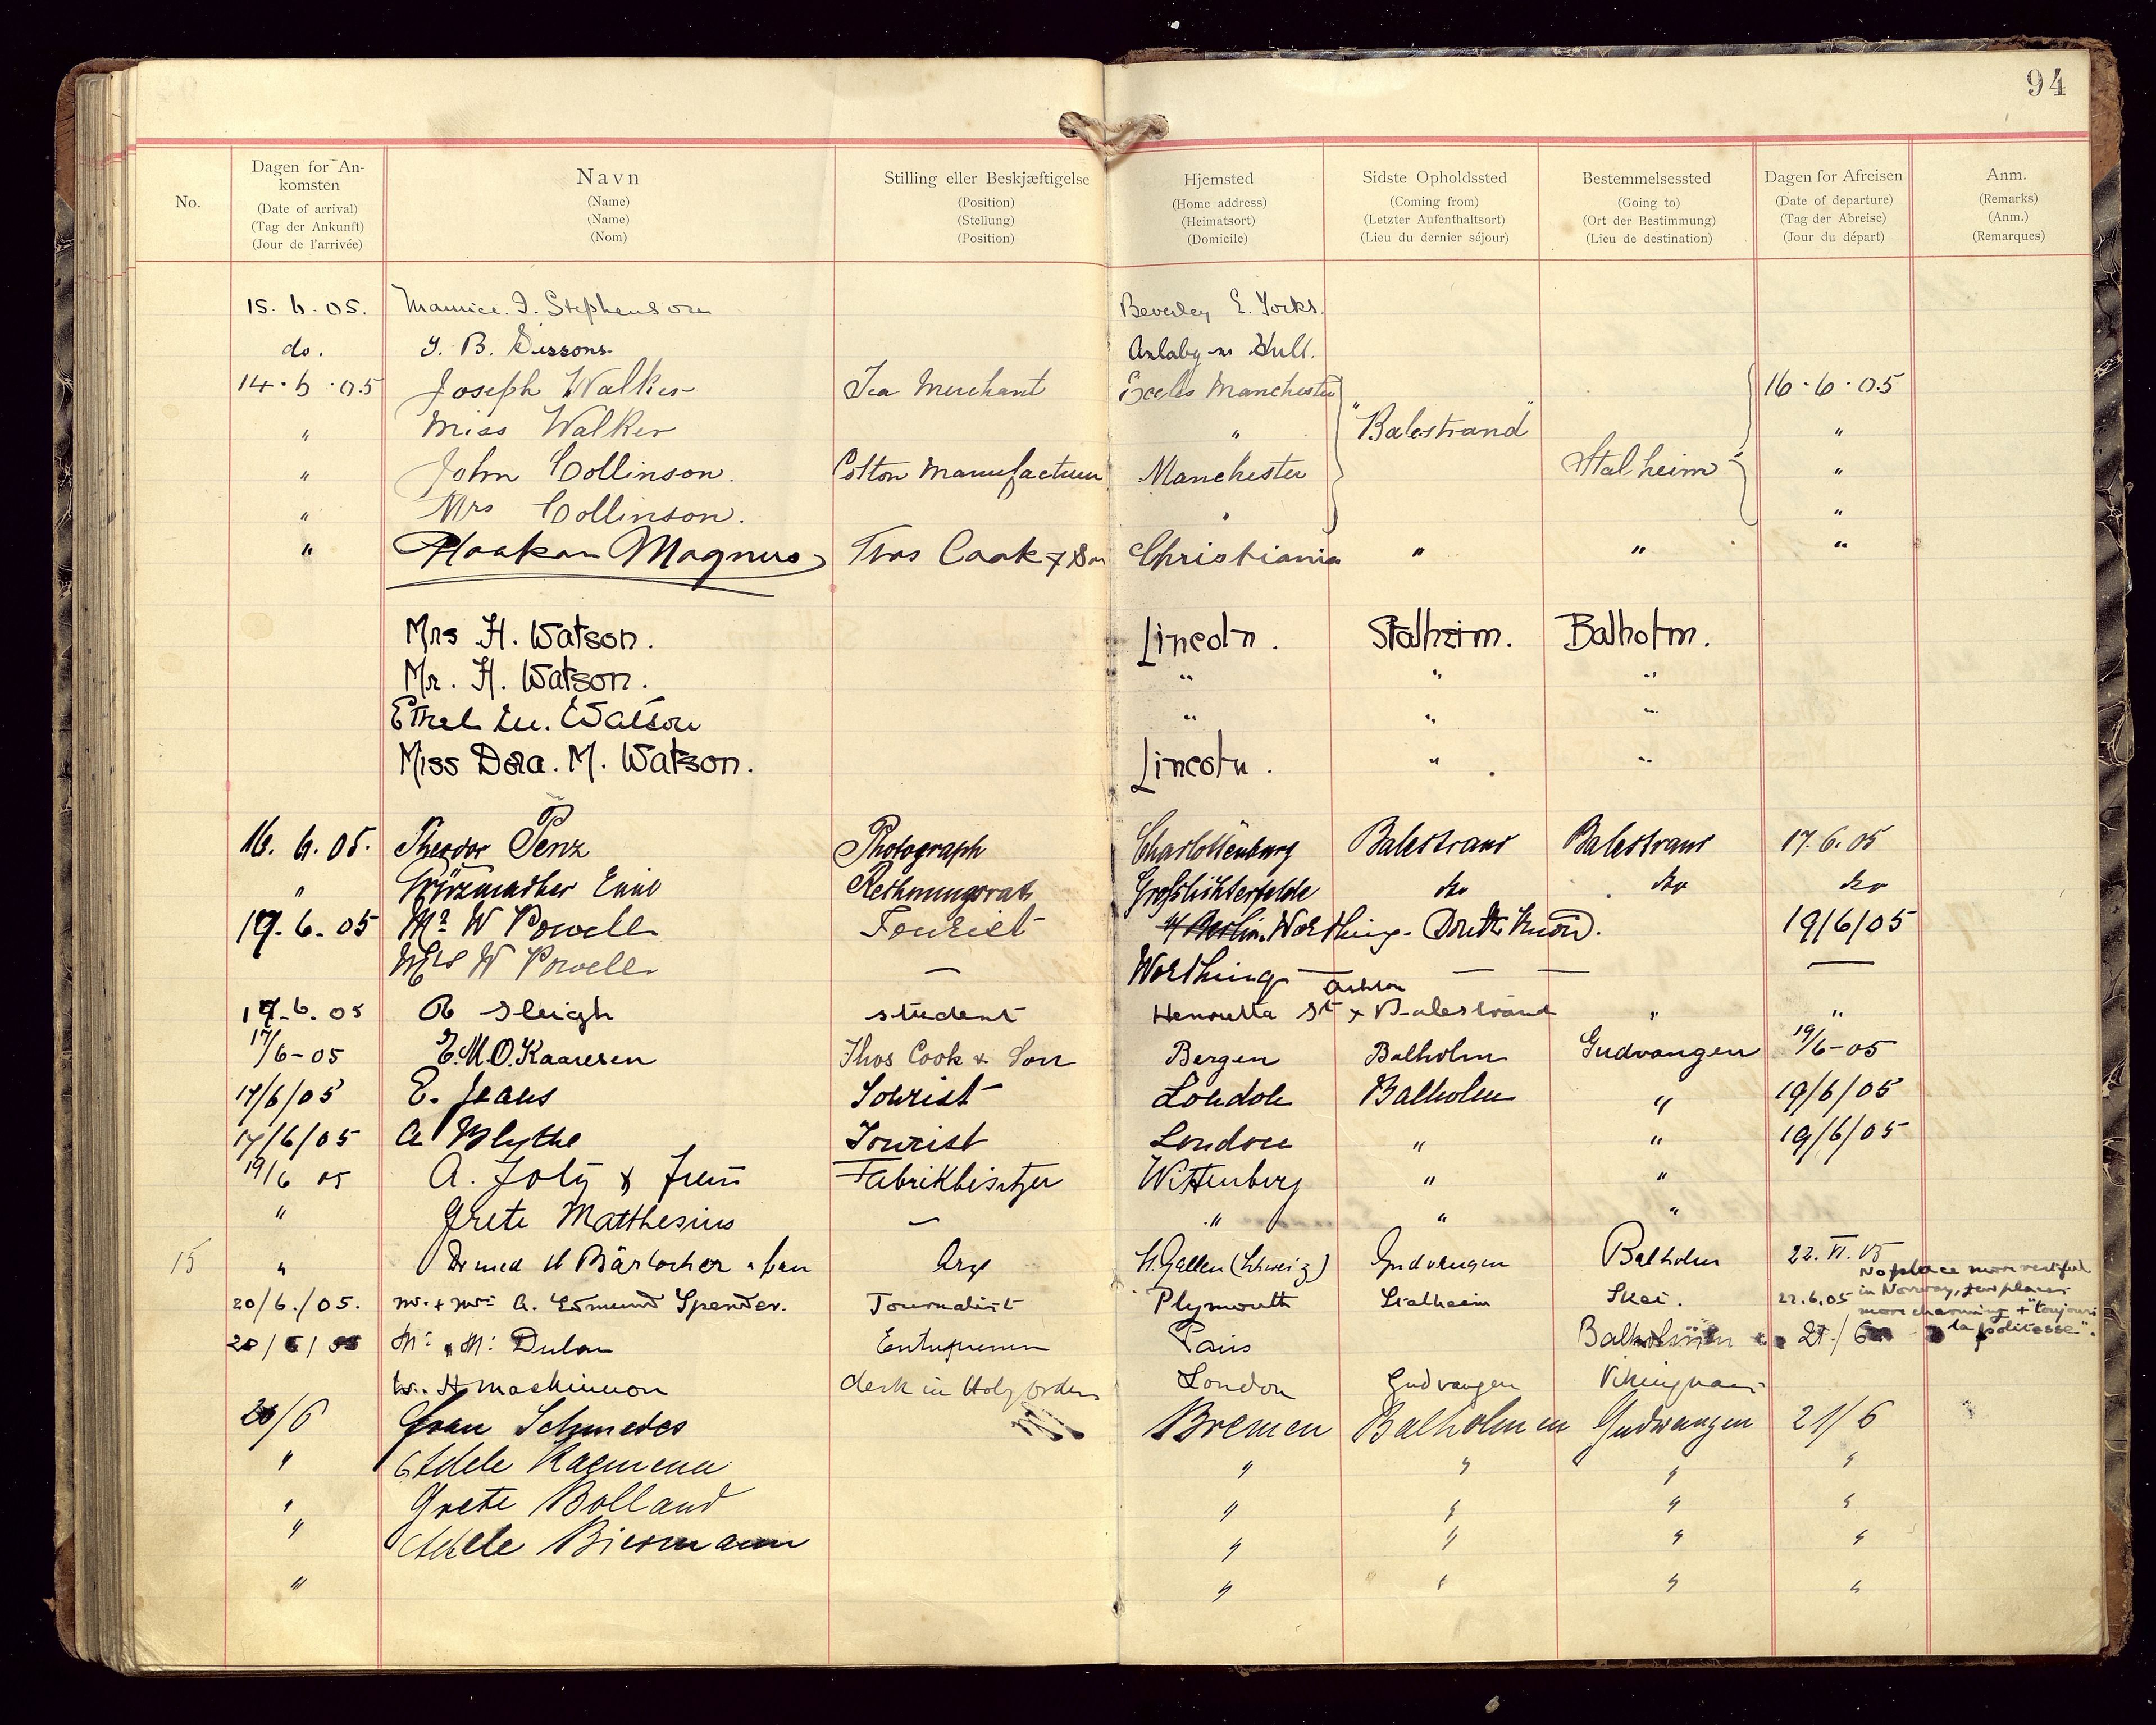 94
No. Dagen for Ankomsten (Date of arrival) (Tag der Ankunft) (Jour de l'arrivée) Navn (Name) (Name) (Nom) Stilling eller Beskjæftigelse (Position) (Stellung) (Position) Hjemsted (Home address) (Heimatsort) (Domicile) Sidste Opholdssted (Coming from) (Letzter Aufenthaltsort) (Lieu du dernier séjour) Bestemmelsessted (Going to) (Ort der Bestimmung) (Lieu de destination) Dagen for Afreisen (Date of departure) (Tag der Abreise) (Jour du départ) Anm. (Remarks) (Anm.) (Remarques)
15. 6. 05. Maurice. I. Stephenson Beverley E. Yorks.
do. J. B. Sissons. Anlaby nr Hull.
14. 6. 05 Joseph Walker Tea Merchant Eccles Manchester 16. 6. 05
" Miss Walker " "Balestrand" "
" John Collinson. Cotton Manufacturer Manchester Stalheim "
" Mrs Collinson. " "
" Haakon Magnus Thos Cook & Son Christiania " " "
Mrs H. Watson. Lincoln. Stalheim. Balholm.
Mr. H. Watson. " " "
Ethel M. Watson " " "
Miss Dora. M. Watson. Lincoln. " "
16. 6. 05. Theodor Penz Photograph Charlottenburg Balestrand Balestrand 17. 6. 05
" Emil Rechnungsrat Großlichterfelde do do do
17. 6. 05 Mr W Powell Tourist b/ Berlin. Worthing. 19/6/05
Mrs W Powell — Worthing — — — —
17. 6. 05 R Sleigh student Henrietta St Ashton Balestrand " "
17/6-05 E.M.O. Kaaresen Thos Cook & Son Bergen Balholm Gudvangen 19/6-05
17/6/05 E. Jeans Tourist London Balholm " 19/6/05
17/6/05 A Blythe Tourist London " " 19/6/05
19/6 05 A. Joly & Frau Fabrikbesitzer Wittenberg " "
" Grete Matthesius — " " "
15 " Dr med H Bärlocher & frau Arzt St. Gallen (Schweiz) Gudvangen Balholm 22. VI. 05
20/6./05. Mr. + Mrs A. Edmund Spender. Journalist Plymouth Stalheim Skei. 22.6.05 No place more restful
in Norway, few places
more charming + "toujours
la politesse".
20/6/05 Mr & Me Dulau Entrepreneur Paris Balholmen 21/6
W. H Mackinnon clerk in Holy orders London Gudvangen
20/6 Frau Schmedes Bremen Balholmen Gudvangen 21/6
" Adele " " " "
" Grete Bolland " " " "
" Adele Biermann " " " "
" " " " "